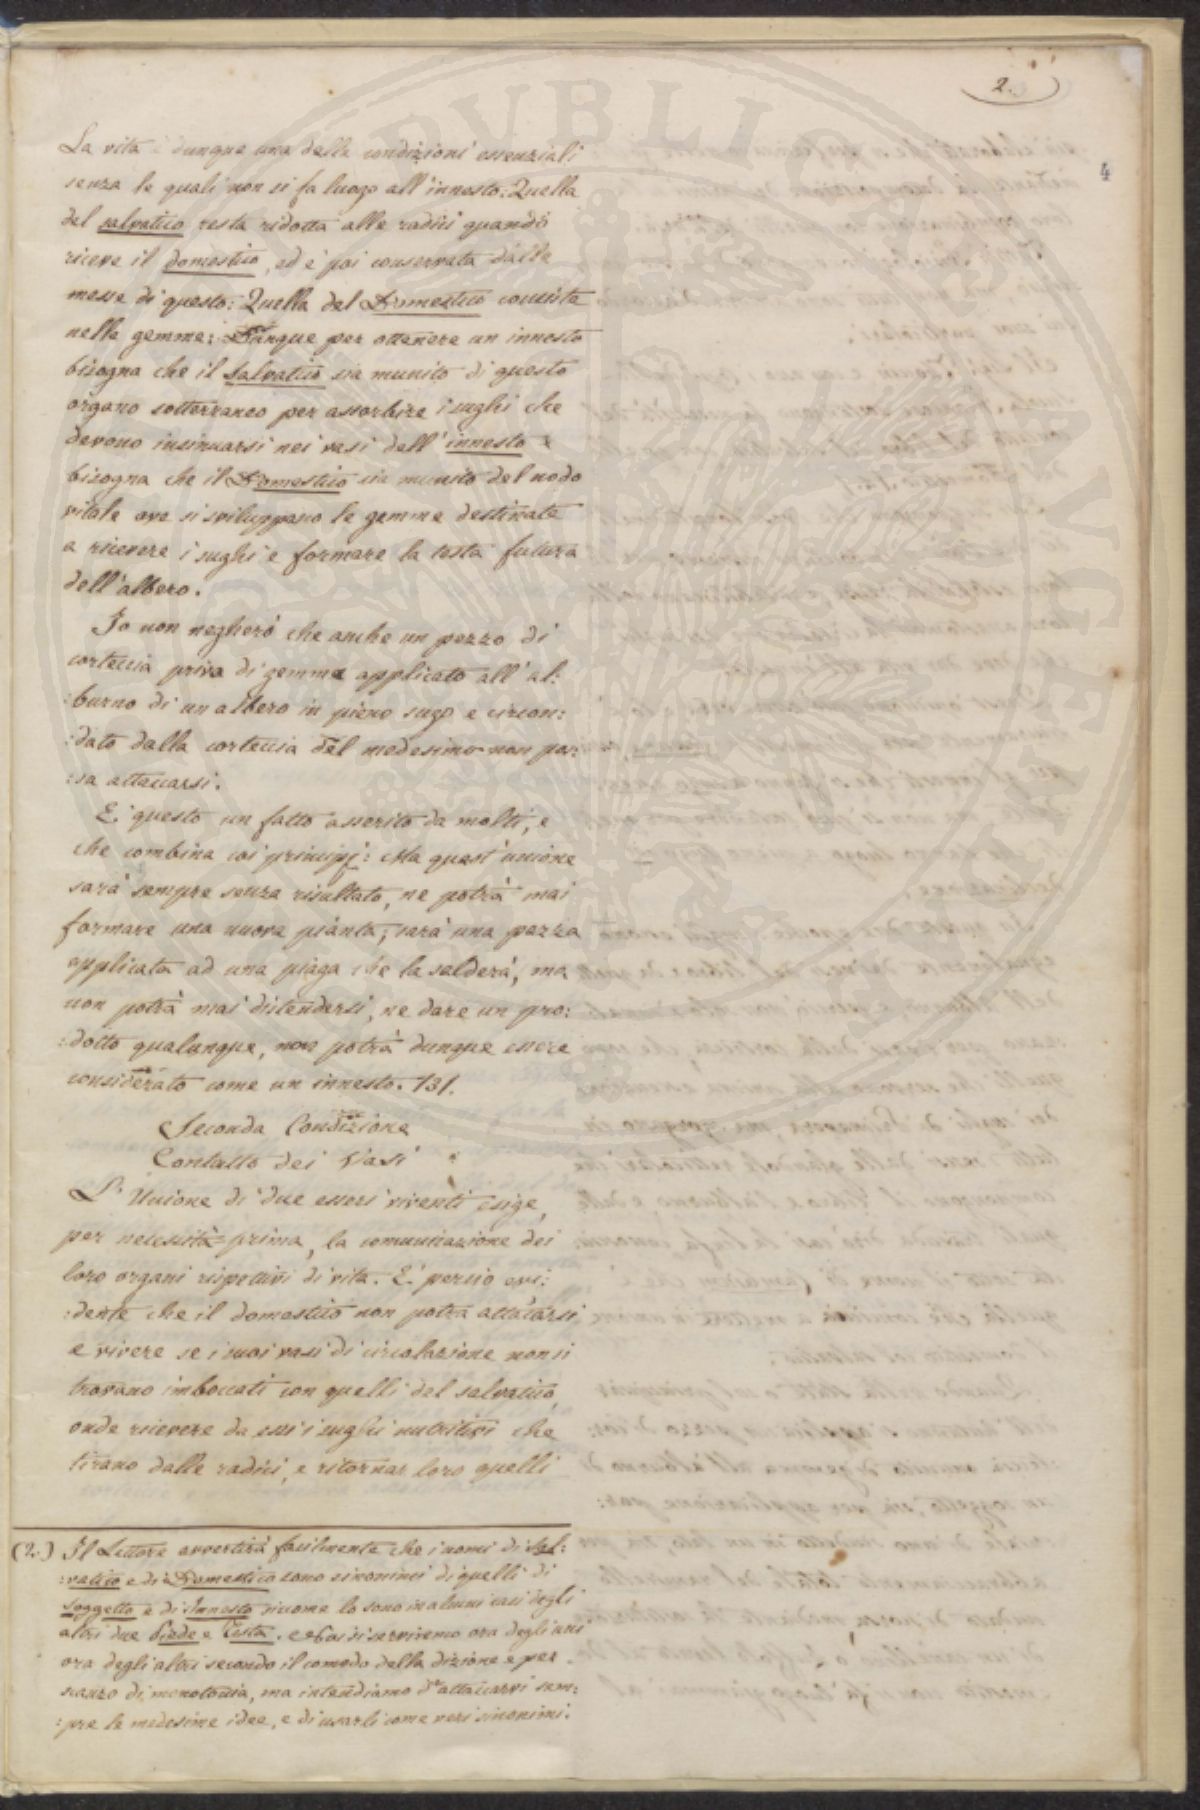 2.
4
La vita è dunque una delle condizioni essenziali
senza le quali non si fa luogo all'innesto: Quella
del salvatico resta ridotta alle radici quando
riceve il domestico, ed è poi conservata dalle
messe di questo: Quella del Domestico consiste
nelle gemme: Dunque per ottenere un innesto
bisogna che il Salvatico sia munito di questo
organo sotterraneo per assorbire i sughi che
devono insinuarsi nei vasi dell'innesto e
bisogna che il Domestico sia munito del nodo
vitale ove si sviluppano le gemme destinate
a ricevere i sughi e formare la testa futura
dell'albero.
Io non negherò che anche un pezzo di
corteccia priva di gemma applicato all'al:
:burno di un albero in pieno sugo e circon:
:dato dalla corteccia del medesimo non pos:
:sa attaccarsi.
E' questo un fatto asserito da molti, e
che combina coi principj: Ma quest'unione
sarà sempre senza risultato, ne potrà mai
formare una nuova pianta; sarà una pezza
applicata ad una piaga che la salderà, ma
non potrà mai distendersi, ne dare un pro:
:dotto qualunque, non potrà dunque essere
considerato come un innesto. /3/.
Seconda Condizione
Contatto dei Vasi
L'Unione di due esseri viventi esige,
per necessità prima, la comunicazione dei
loro organi rispettivi di vita. E' perciò evi:
:dente che il domestico non potrà attacarsi
e vivere se i suoi vasi di circolazione non si
trovano imboccati con quelli del salvatico,
onde ricevere da essi i sughi nutritivi che
tirano dalle radici, e ritornar loro quelli
(2.) Il Lettore avvertirà facilmente che i nomi di Sal:
:vatico e di Domestico sono sinonimi di quelli di
Soggetto e di Innesto siccome lo sono in alcuni casi degli
altri due Piede e Testa. Noi ci serviremo ora degli uni
ora degli altri secondo il comodo della dizione e per
scanzo di monotonia, ma intendiamo d'attaccarvi sem:
:pre le medesime idee, e di usarli come veri sinonimi.